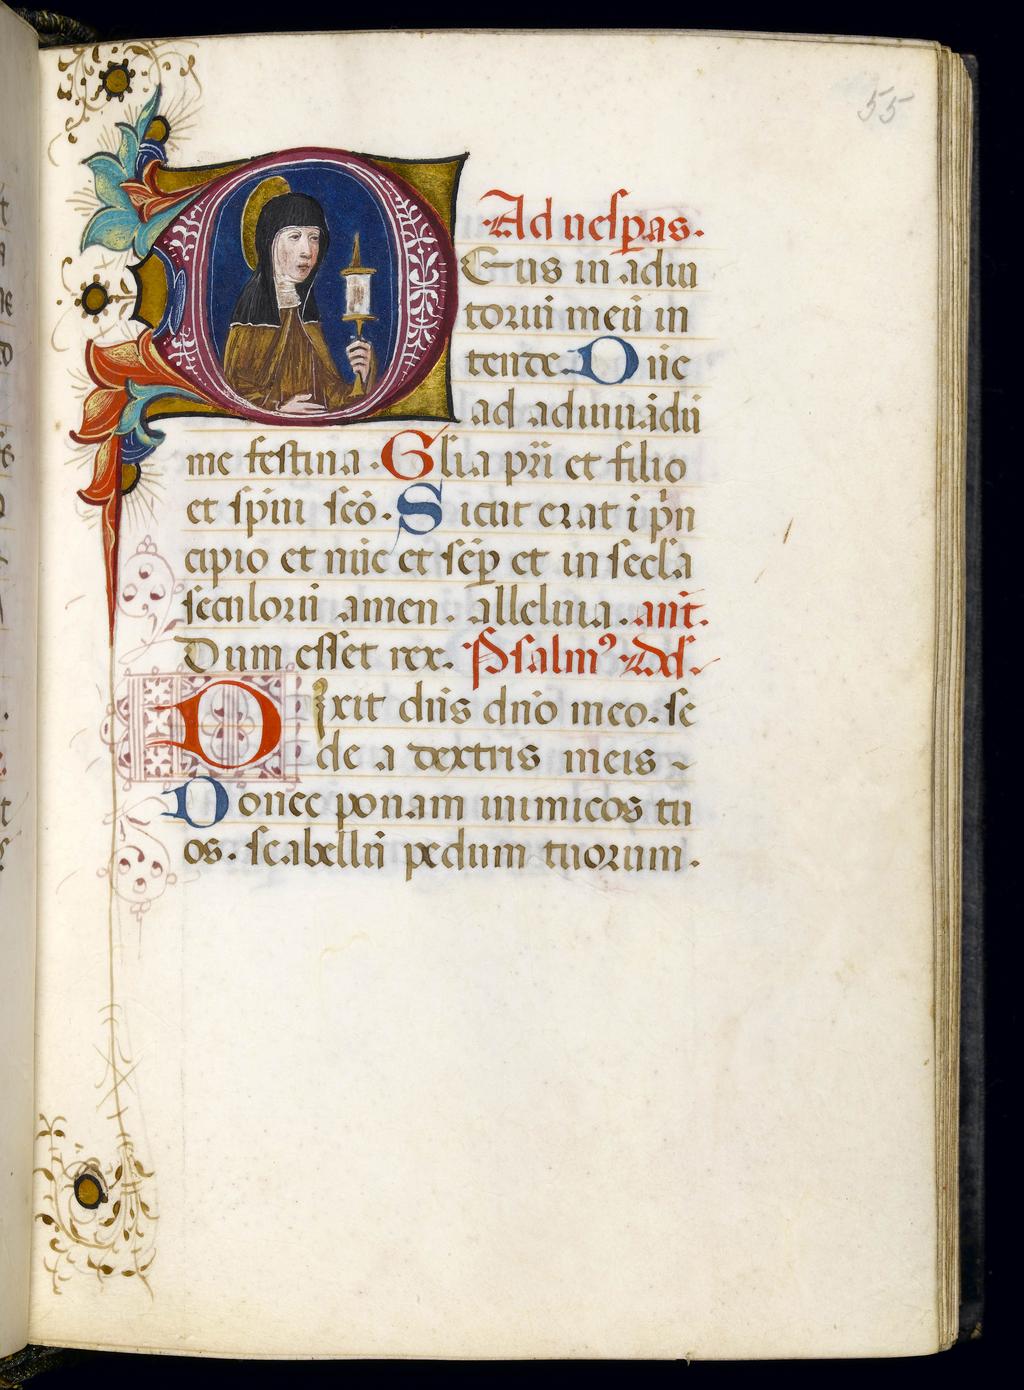 55
Ad uesꝑas.
Eus in adiu
toriū meū in
tende. Dñe
ad adiuuādū
me festina. Glia pr̄i et filio
et spiui scō. Sicut erat i pͥn
cipio et nūc et sēꝑ et in secla
seculorū amen. alleluia. ant̄.
Dum esset rex. Psalmꝰ .dd.
Dixit dn̄s dn̄o meo. se
de a dextris meis ~
Donec ponam inimicos tu
os. scabellū pedum tuorum.